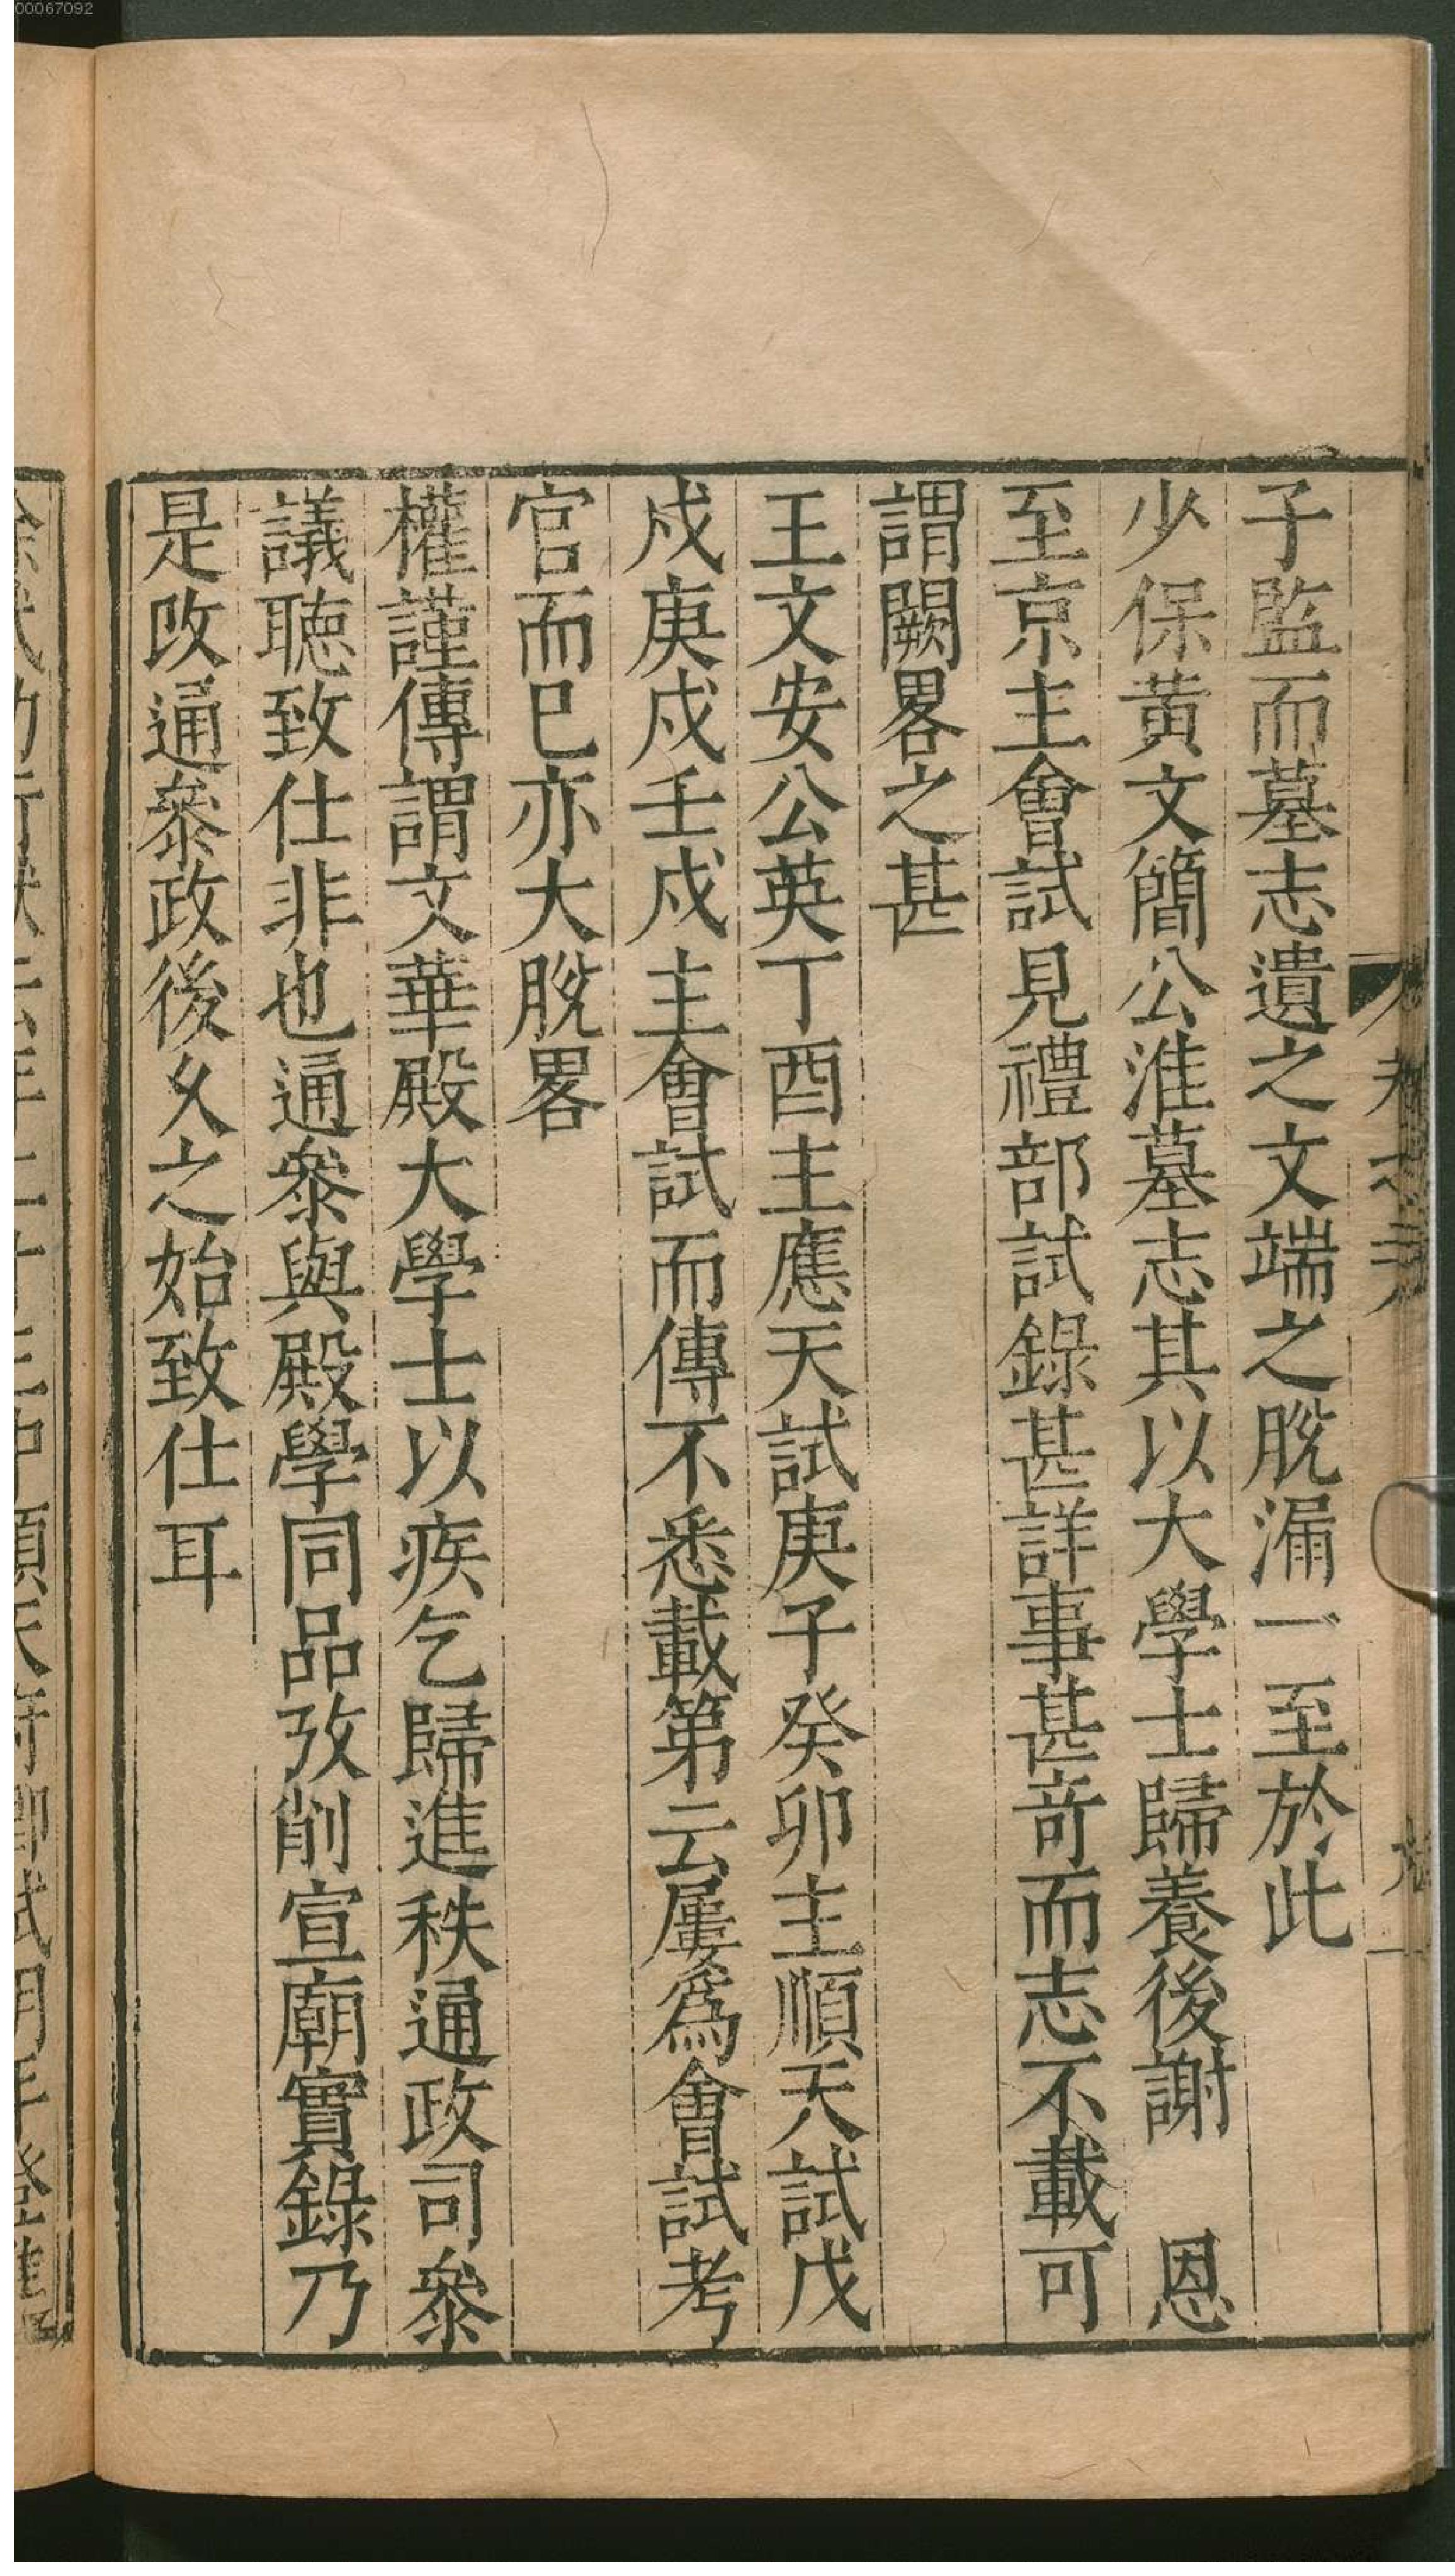 00067092
子監而墓志遺之文端之脫漏一至於此
少保黃文簡公淮墓志其以大學士歸養後謝 恩
至京主會試見禮部試錄甚詳事甚奇而志不載可
謂闕畧之甚
王文安公英丁酉主應天試庚子癸卯主順天試戊
戌庚戌壬戌主會試而傳不悉載第云屢爲會試考
官而巳亦大脫畧
權謹傳謂文華殿大學士以疾乞歸進秩通政司叅
議聽致仕非也通叅與殿學同品攷削宣廟實錄乃
是改通叅政後久之始致仕耳